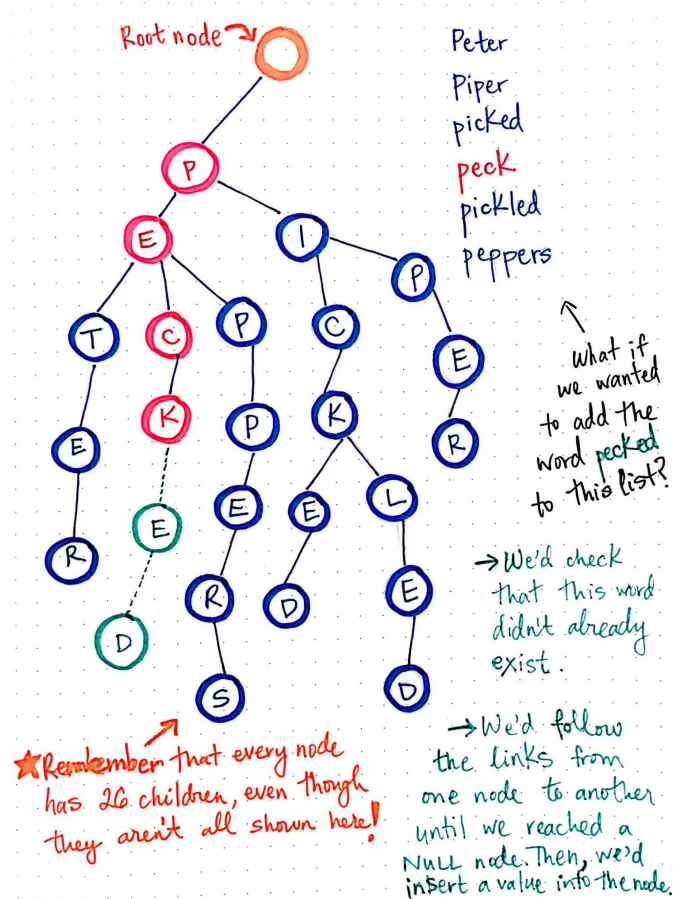 Root node
Peter
Piper
picked
peck
pickled
peppers
P
E
I
P
T
C
P
C
E
E
K
P
K
R
R
E
E
E
L
D
R
D
E
S
D
What if
we wanted
to add the
word pecked
to this list?
→ We'd check
that this word
didn't already
exist.
→ We'd follow
the links from
one node to another
until we reached a
NULL node. Then, we'd
insert a value into the node.
★ Remember that every node
has 26 children, even though
they aren't all shown here!